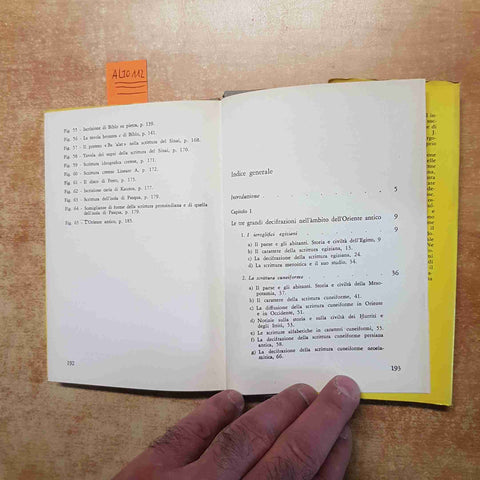 ALJO112
Fig. 55 - Iscrizione di Biblo su pietra, p. 139.
Fig. 56 - La tavola bronzea c di Biblo, p. 141.
Fig. 57 - Il puttino «Ba'alat» nella scrittura del Sinai, p. 168.
Fig. 58 - Tavola dei segni della scrittura del Sinai, p. 170.
Fig. 59 - Scrittura ideografica cretese, p. 171.
Fig. 60 - Scrittura cretese Lineare A, p. 173.
Fig. 61 - Il disco di Festo, p. 175.
Fig. 62 - Iscrizione caria di Kaunos, p. 176.
Fig. 63 - Scrittura dell'isola di Pasqua, p. 177.
Fig. 64 - Somiglianze di forme della scrittura protoindiana e di quella
dell'isola di Pasqua, p. 179.
Fig. 65 - L'Oriente antico, p. 185.
192
Indice generale
Introduzione 5
Capitolo I
Le tre grandi decifrazioni nell'àmbito dell'Oriente antico 9
1. I geroglifici egiziani 9
a) Il paese e gli abitanti. Storia e civiltà dell'Egitto, 9.
b) Il carattere della scrittura egiziana, 13.
c) La decifrazione della scrittura egiziana, 24.
d) La scrittura meroitica e il suo studio, 34.
2. La scrittura cuneiforme 36
a) Il paese e gli abitanti. Storia e civiltà della Meso-
potamia, 37.
b) Il carattere della scrittura cuneiforme, 41.
c) La diffusione della scrittura cuneiforme in Oriente
e in Occidente, 51.
d) Notizie sulla storia e sulla civiltà dei Hurriti e
degli Ittiti, 53.
e) Le scritture alfabetiche in caratteri cuneiformi, 55.
f) La decifrazione della scrittura cuneiforme persiana
antica, 58.
g) La decifrazione della scrittura cuneiforme neoela-
mitica, 66.
193